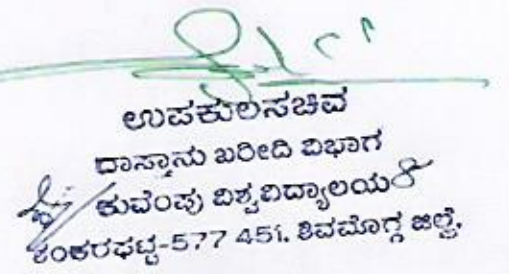 ಉಪಕುಲಸಚಿವ
ದಾಸ್ತಾನು ಖರೀದಿ ವಿಭಾಗ
ಕುವೆಂಪು ವಿಶ್ವವಿದ್ಯಾಲಯ
ಶಂಕರಘಟ್ಟ-577 451. ಶಿವಮೊಗ್ಗ ಜಿಲ್ಲೆ.